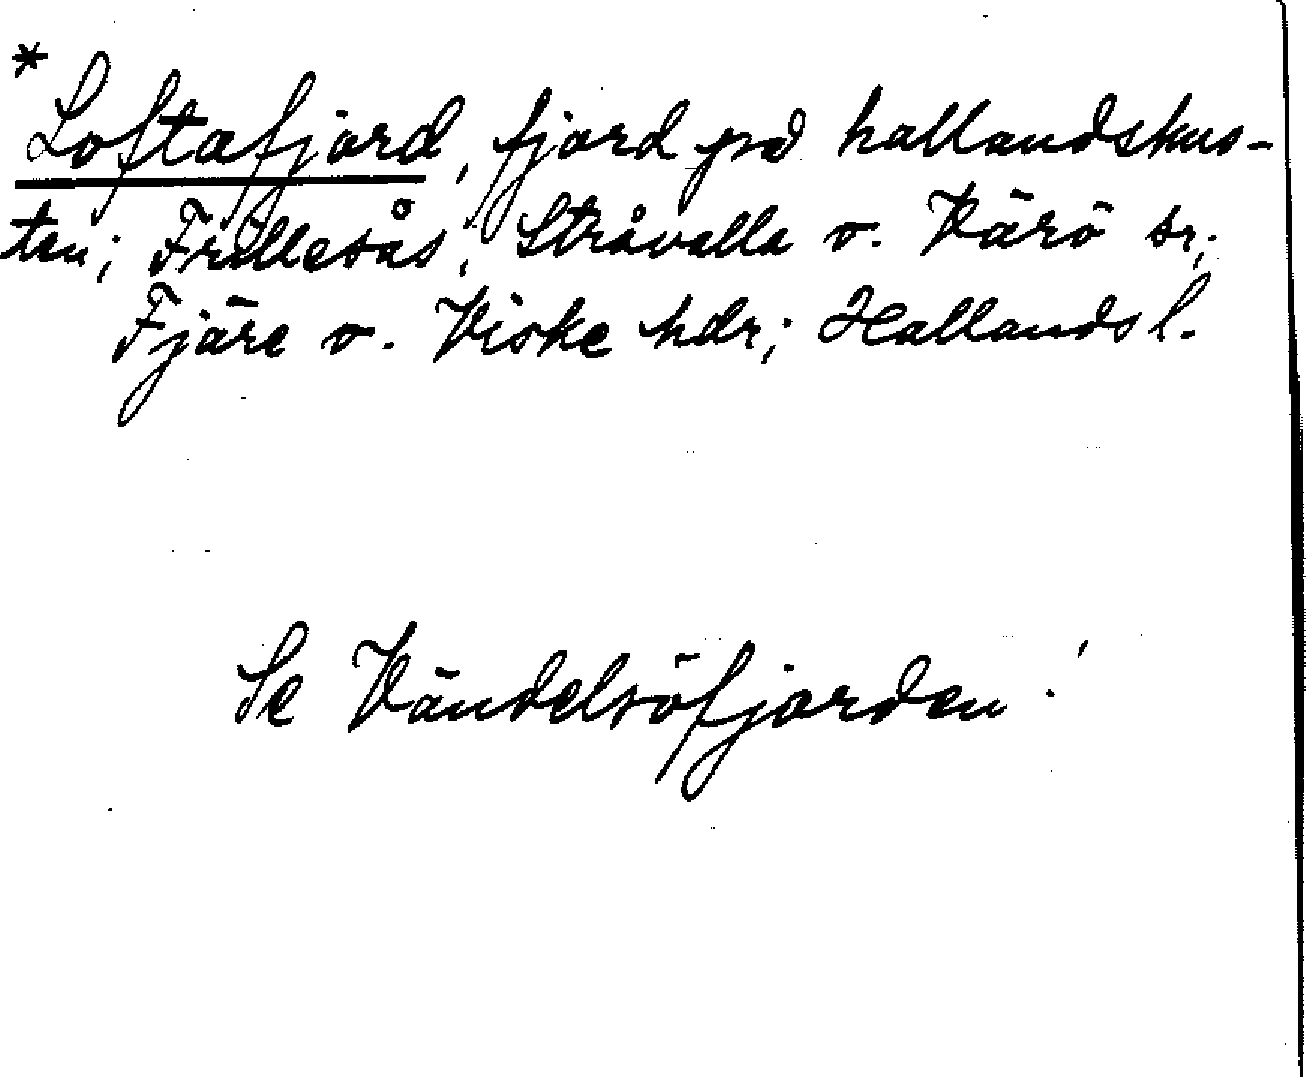 *Loftafjord, fjord på hallandskus-
ten; Frillesås, Stråvalla o. Värö sr,;
Fjäre o. Viske hdr; Hallands l.
Se Vändelsöfjorden!